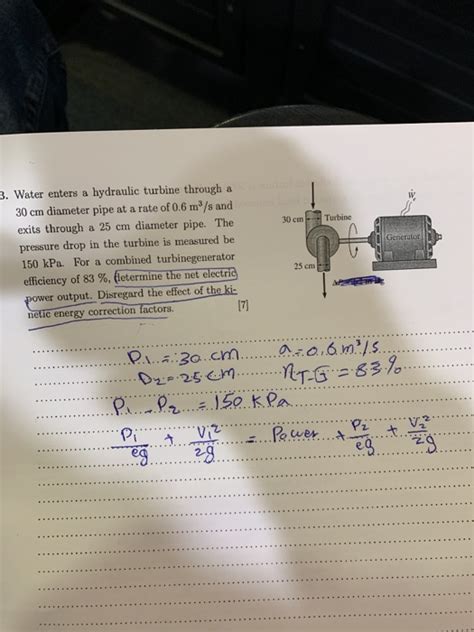 3. Water enters a hydraulic turbine through a
30 cm diameter pipe at a rate of 0.6 m³/s and
exits through a 25 cm diameter pipe. The
pressure drop in the turbine is measured be
150 kPa. For a combined turbinegenerator
efficiency of 83 %, determine the net electric
power output. Disregard the effect of the ki-
netic energy correction factors. [7]
Ẇ
30 cm Turbine
Generator
25 cm
D₁ = 30 cm a = 0.6 m³/s
D₂ = 25 cm η T-G = 83%
P₁ - P₂ = 150 KPa
P₁/eg + V₁²/2g = Power + P₂/eg + V₂²/2g